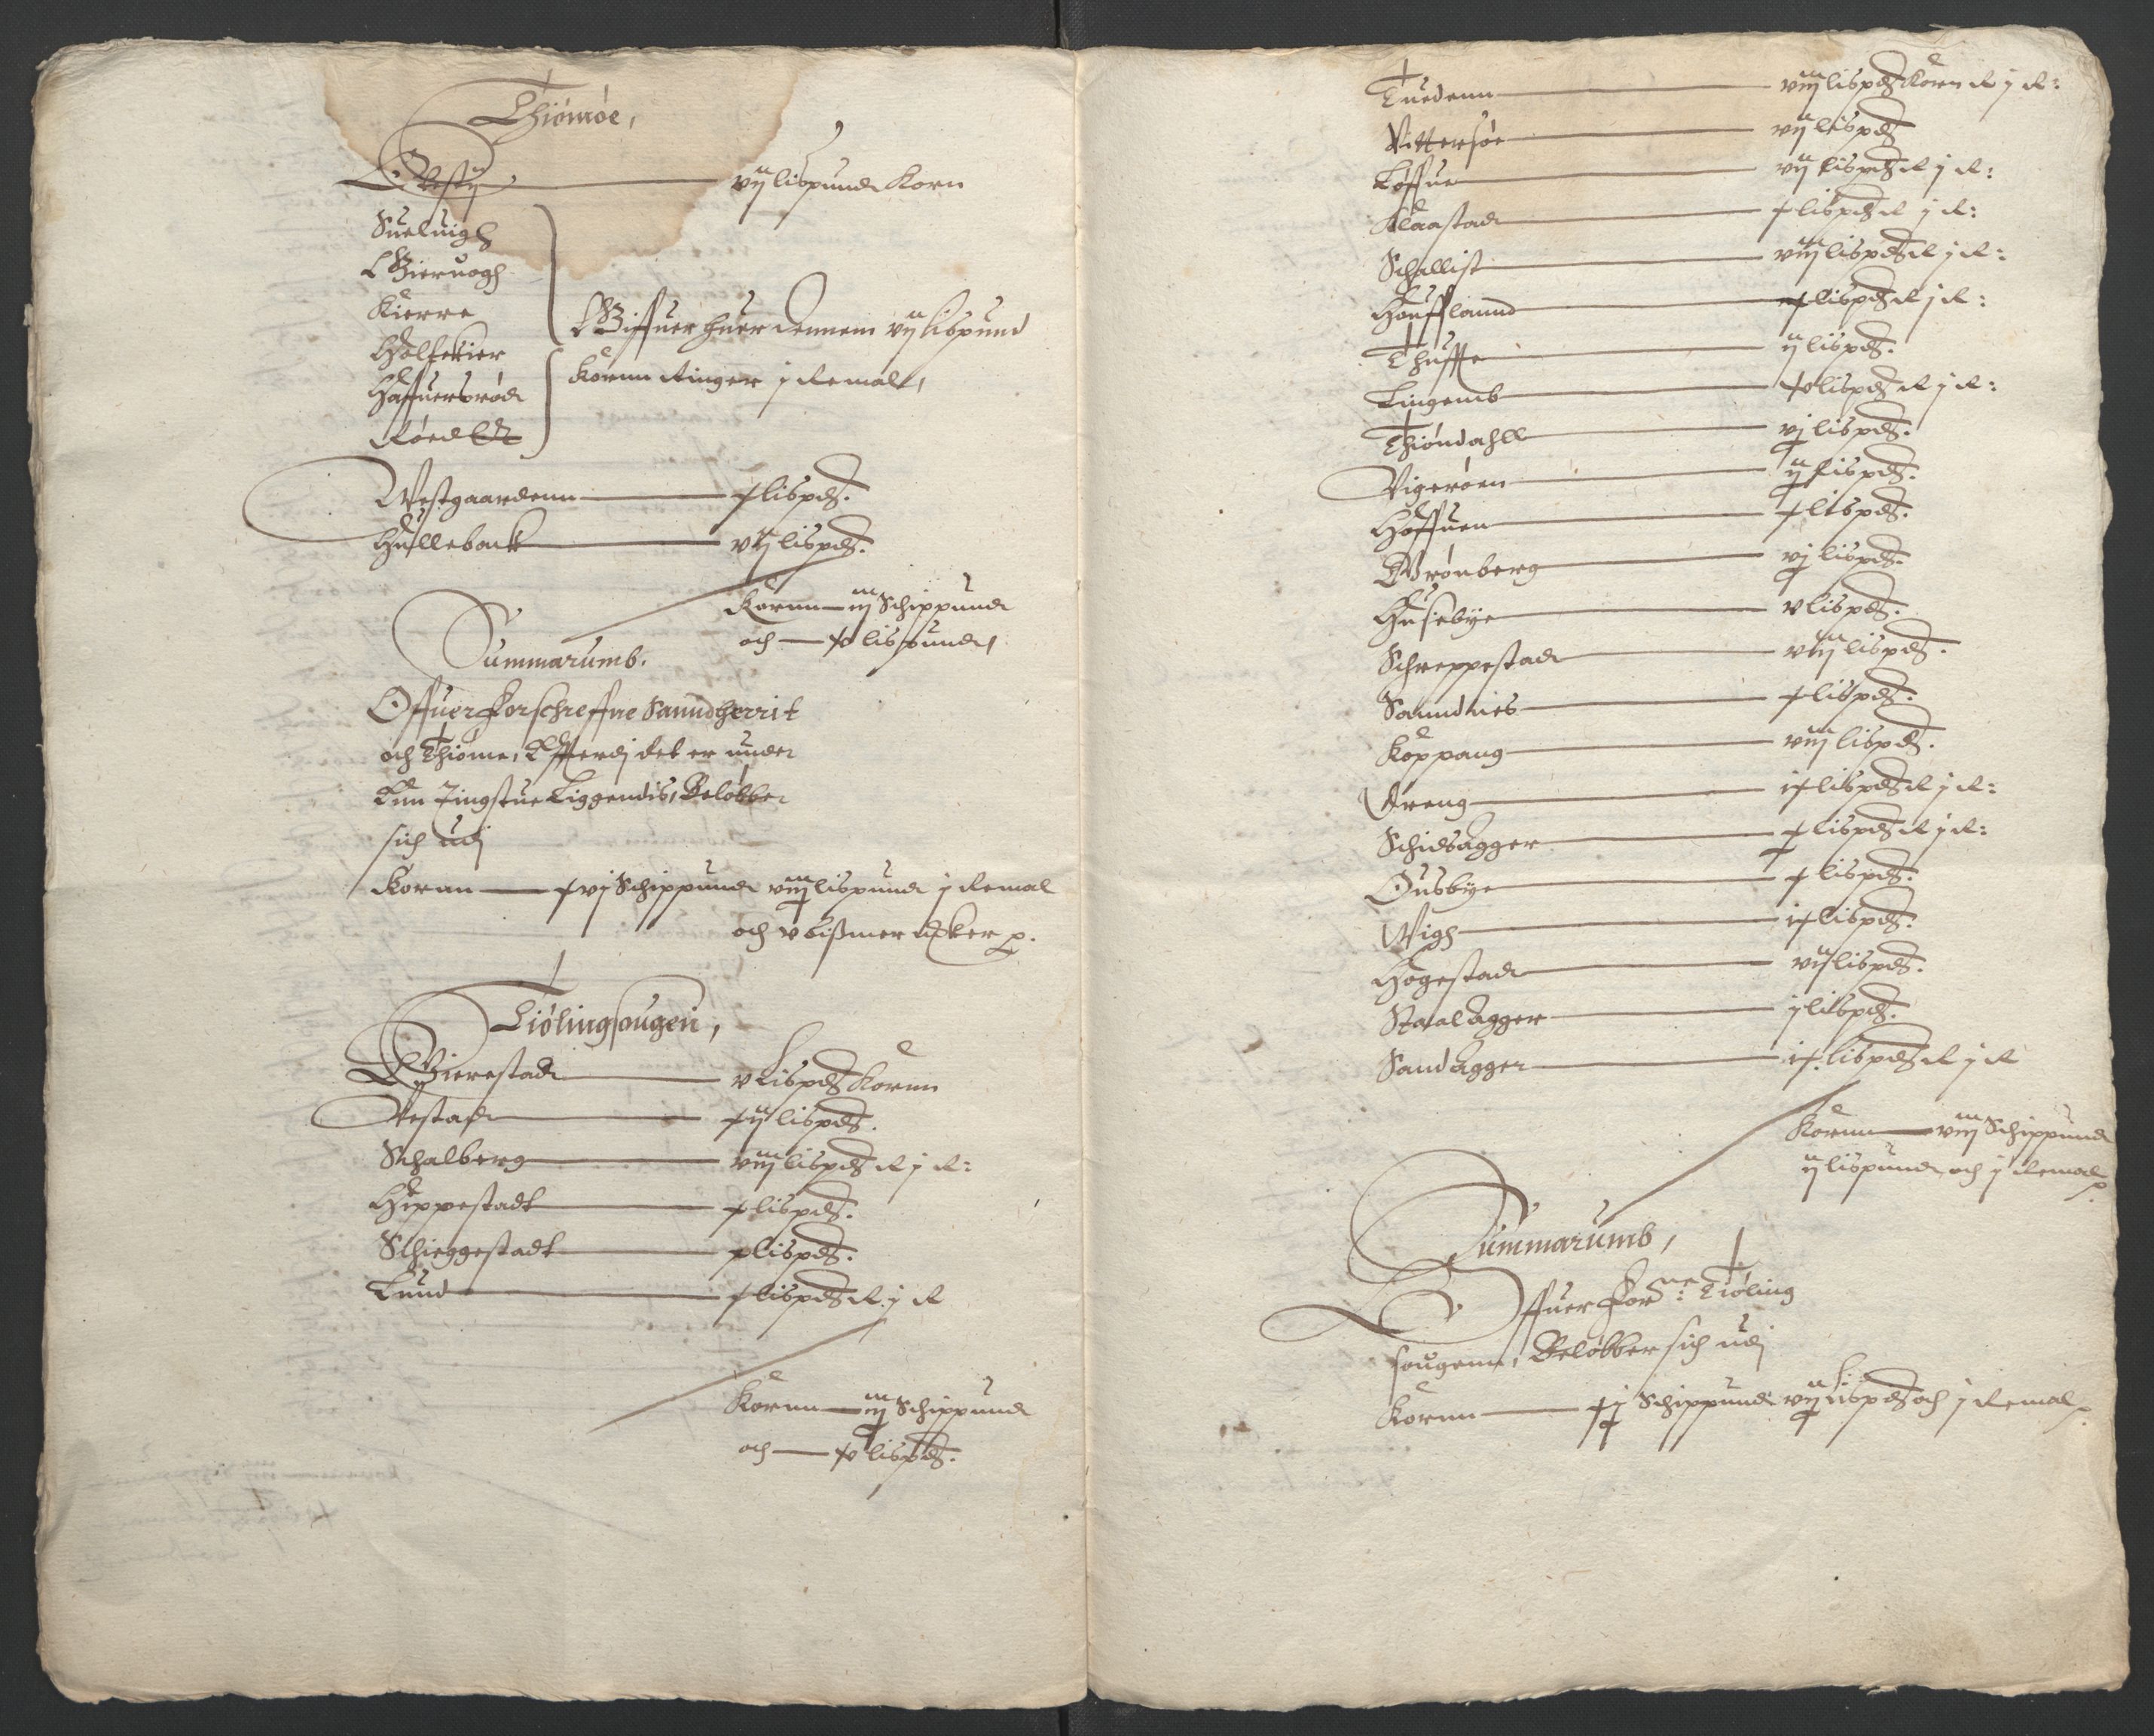 Thiømøe,
Østby — vij lispunde Korn
Sueluigh
Gieruogh
Kierre
Holfekier
Haffuersrød
Røed
Giffuer huer dennem vij lispund
Kornn Ringer j Remal,
Westgaardenn — x lispd.
Hulleback — vij lispd.
Kornn — iiij Schippund
och — xv lispunde,
Summarumb.
Offuer forschreffne Sanndherrit
och Thiøme, Effterdj det er under
Een Tingstue Liggendis, Beløbber
sich udj
Kornn — xvj Schippund viij lispund j Remal
och v bißmer Kier p.
Tiølingsougen,
Gierestad — v lispd Kornn
Restad — xij lispd.
Schalberg — viij lispd R j R:
Heppestadt — x lispd.
Schieggestadt — x lispd.
Lund — x lispd R j R
Kornn — iiij Schippund
och — xv lispd.
Tuedenn — viij lispd Korn R j R:
Vittersøe — vij lispd
Løffue — vij lispd R j R:
Klaastad — x lispd R j R:
Schallist — viij lispd R j R:
Houfflannd — x lispd R j R:
Thuffte — ij lispd.
Lingemb — xv lispd R j R:
Thiøndahll — vj lispd.
Vigerøen — ij lispd.
Hoffuen — x lispd.
Grønberg — vj lispd.
Husebye — v lispd.
Schreppestad — viij lispd.
Sanndnes — x lispd.
Koppang — viij lispd.
Vreng — ix lispd R j R:
Schidsagger — x lispd R j R:
Ousbye — x lispd.
Wigh — ix lispd.
Hogestad — vij lispd.
Staalagger — j lispd.
Sandagger — ix lispd R j R
Kornn — viij Schippund
ij lispunde och j Remal p.
Summarumb,
Offuer for.ne: Tiøling
sougenn, Beløbber sich udj
Kornn — xij Schippund vij lispd och j Remal p.